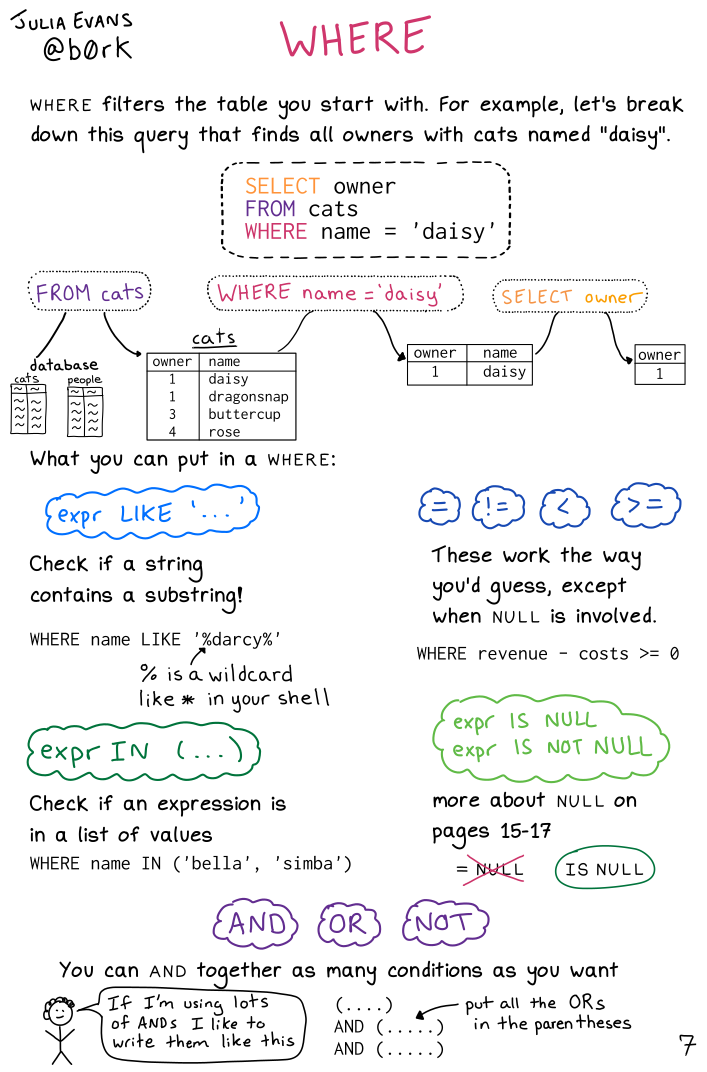 JULIA EVANS
@b0rk
WHERE
WHERE filters the table you start with. For example, let's break
down this query that finds all owners with cats named "daisy".
SELECT owner
FROM cats
WHERE name = 'daisy'
FROM cats
WHERE name = 'daisy'
SELECT owner
database
cats people
cats
owner name
1 daisy
1 dragonsnap
3 buttercup
4 rose
owner name
1 daisy
owner
1
What you can put in a WHERE:
expr LIKE '...'
Check if a string
contains a substring!
WHERE name LIKE '%darcy%'
% is a wildcard
like * in your shell
= != < >=
These work the way
you'd guess, except
when NULL is involved.
WHERE revenue - costs >= 0
expr IN (...)
Check if an expression is
in a list of values
WHERE name IN ('bella', 'simba')
expr IS NULL
expr IS NOT NULL
more about NULL on
pages 15-17
= NULL IS NULL
AND OR NOT
You can AND together as many conditions as you want
If I'm using lots
of ANDs I like to
write them like this
(....)
AND (.....)
AND (.....)
put all the ORs
in the parentheses
7